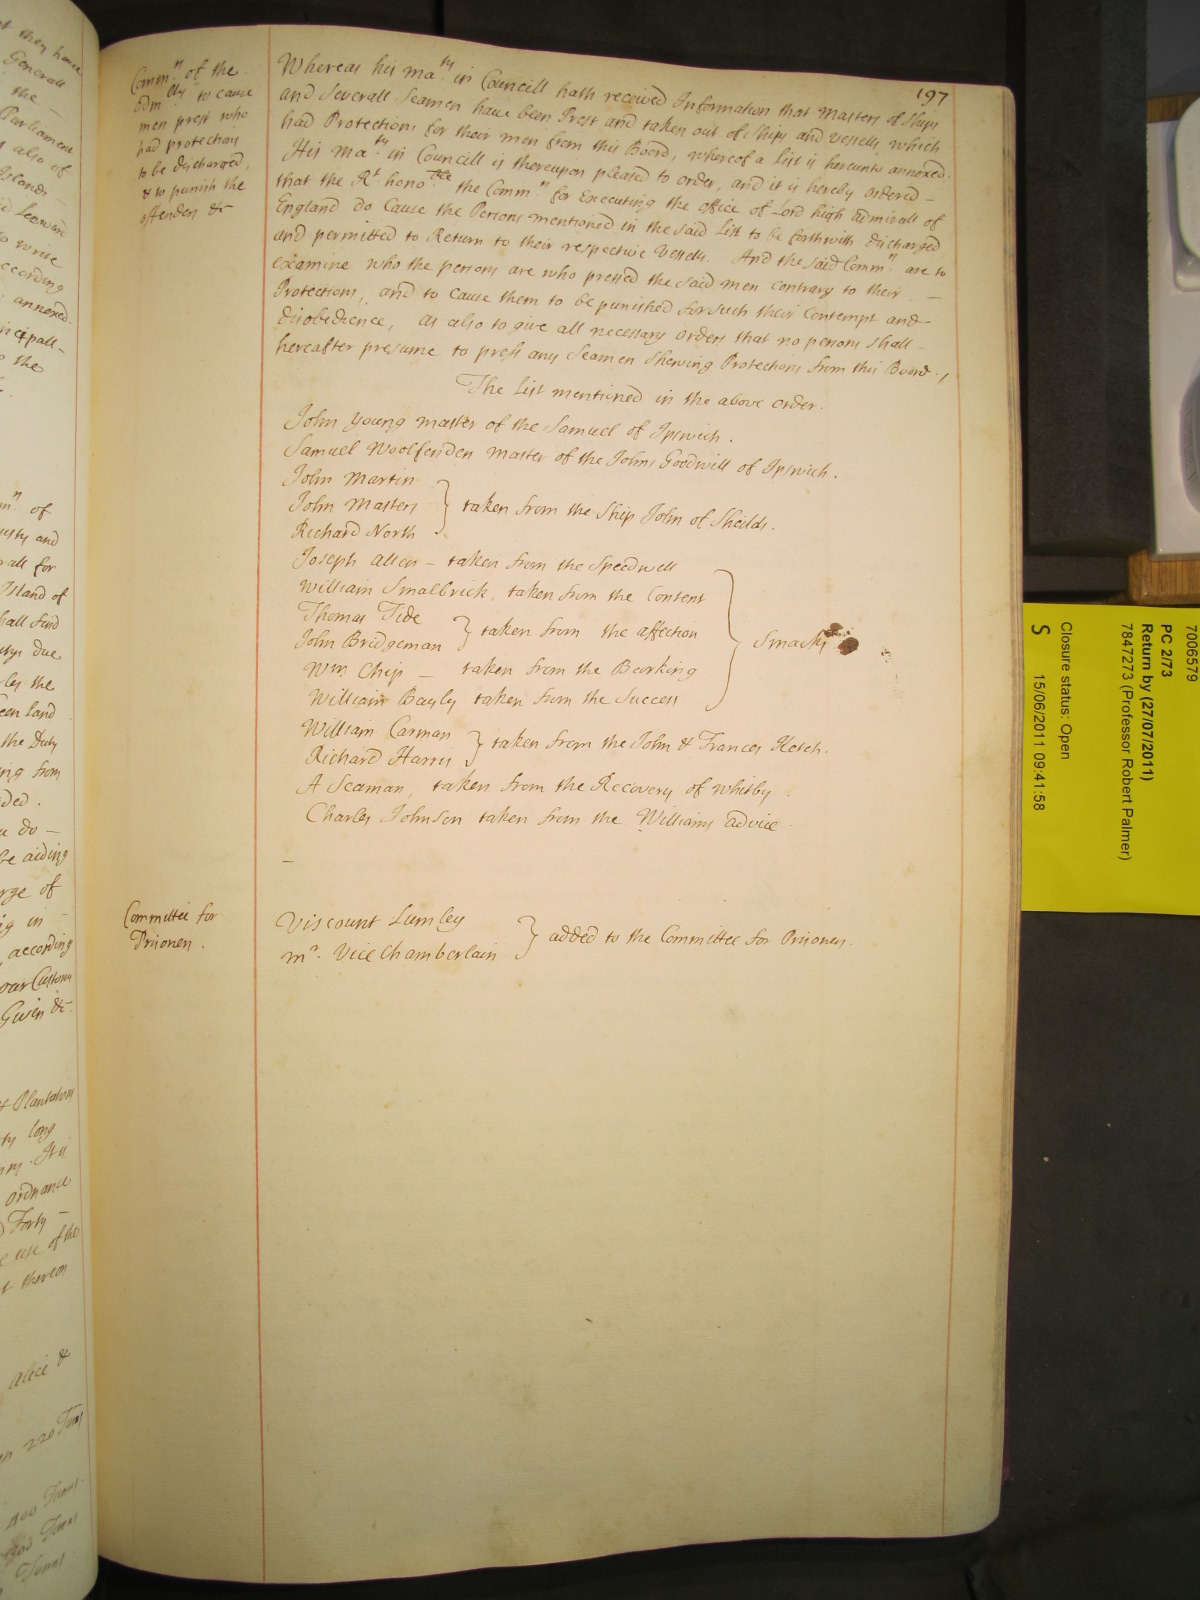 197
Comm.n of the
Adm.lty to cause
men prest who
had protections
to be discharged,
& to punish the
offenders &c
Whereas his Ma.ty in Councill hath received Information that Masters of Ships
and Severall Seamen have been Prest and taken out of Ships and Vessells which
had Protections for their men from this Board, whereof a List is hereunto annexed.
His Ma.ty in Councill is thereupon pleased to order, and it is hereby ordered –
that the R.t hono.ble the Comm.n for Executing the office of Lord high Admirall of
England do Cause the Persons mentioned in the said List to be forthwith discharged
and permitted to Return to their respective Vessells. And the said Comm.n are to
examine who the persons are who pressed the said men contrary to their –
Protections, and to cause them to be punished for such their Contempt and
disobedience, As also to give all necessary orders that no persons shall –
hereafter presume to press any Seamen Shewing Protections from this Board.
The List mentioned in the above order.
John Young master of the Samuel of Ipswich.
Samuel Woolfenden master of the Johns Goodwill of Ipswich.
John Martin
John Masters } taken from the Ship John of Sheilds.
Richard North
Joseph Allen – taken from the Speedwell
William Smalbrick, taken from the Content
Thomas Tide
John Bridgeman } taken from the affection } Smacks
Wm Chip – taken from the Barking
William Bayly taken from the Success
William Carman
Richard Harris } taken from the John & Frances Ketch.
A Seaman, taken from the Recovery of Whitby.
Charles Johnson taken from the Williams advice.
–
Committee for
Prisoners.
Viscount Lumley
m.r Vice Chamberlain } added to the Committee for Prisoners.
7006579
PC 2/73
Return by (27/07/2011)
7847273 (Professor Robert Palmer)
Closure status: Open
S 15/06/2011 09:41:58
they have
Generall
the –
Parliament
also of
Islands
Leeward
to write
according
annexed.
to the
of
and
rall for
Island of
hall find
due
the
land
the Duty
ing from
ded.
do –
be aiding
rge of
in –
according
our Customs
Given &c
& Plantations
long
It is
ordnance
Forty –
use of the
thereon
Alice &
220 Tuns
400 Tuns
Tuns
Tuns